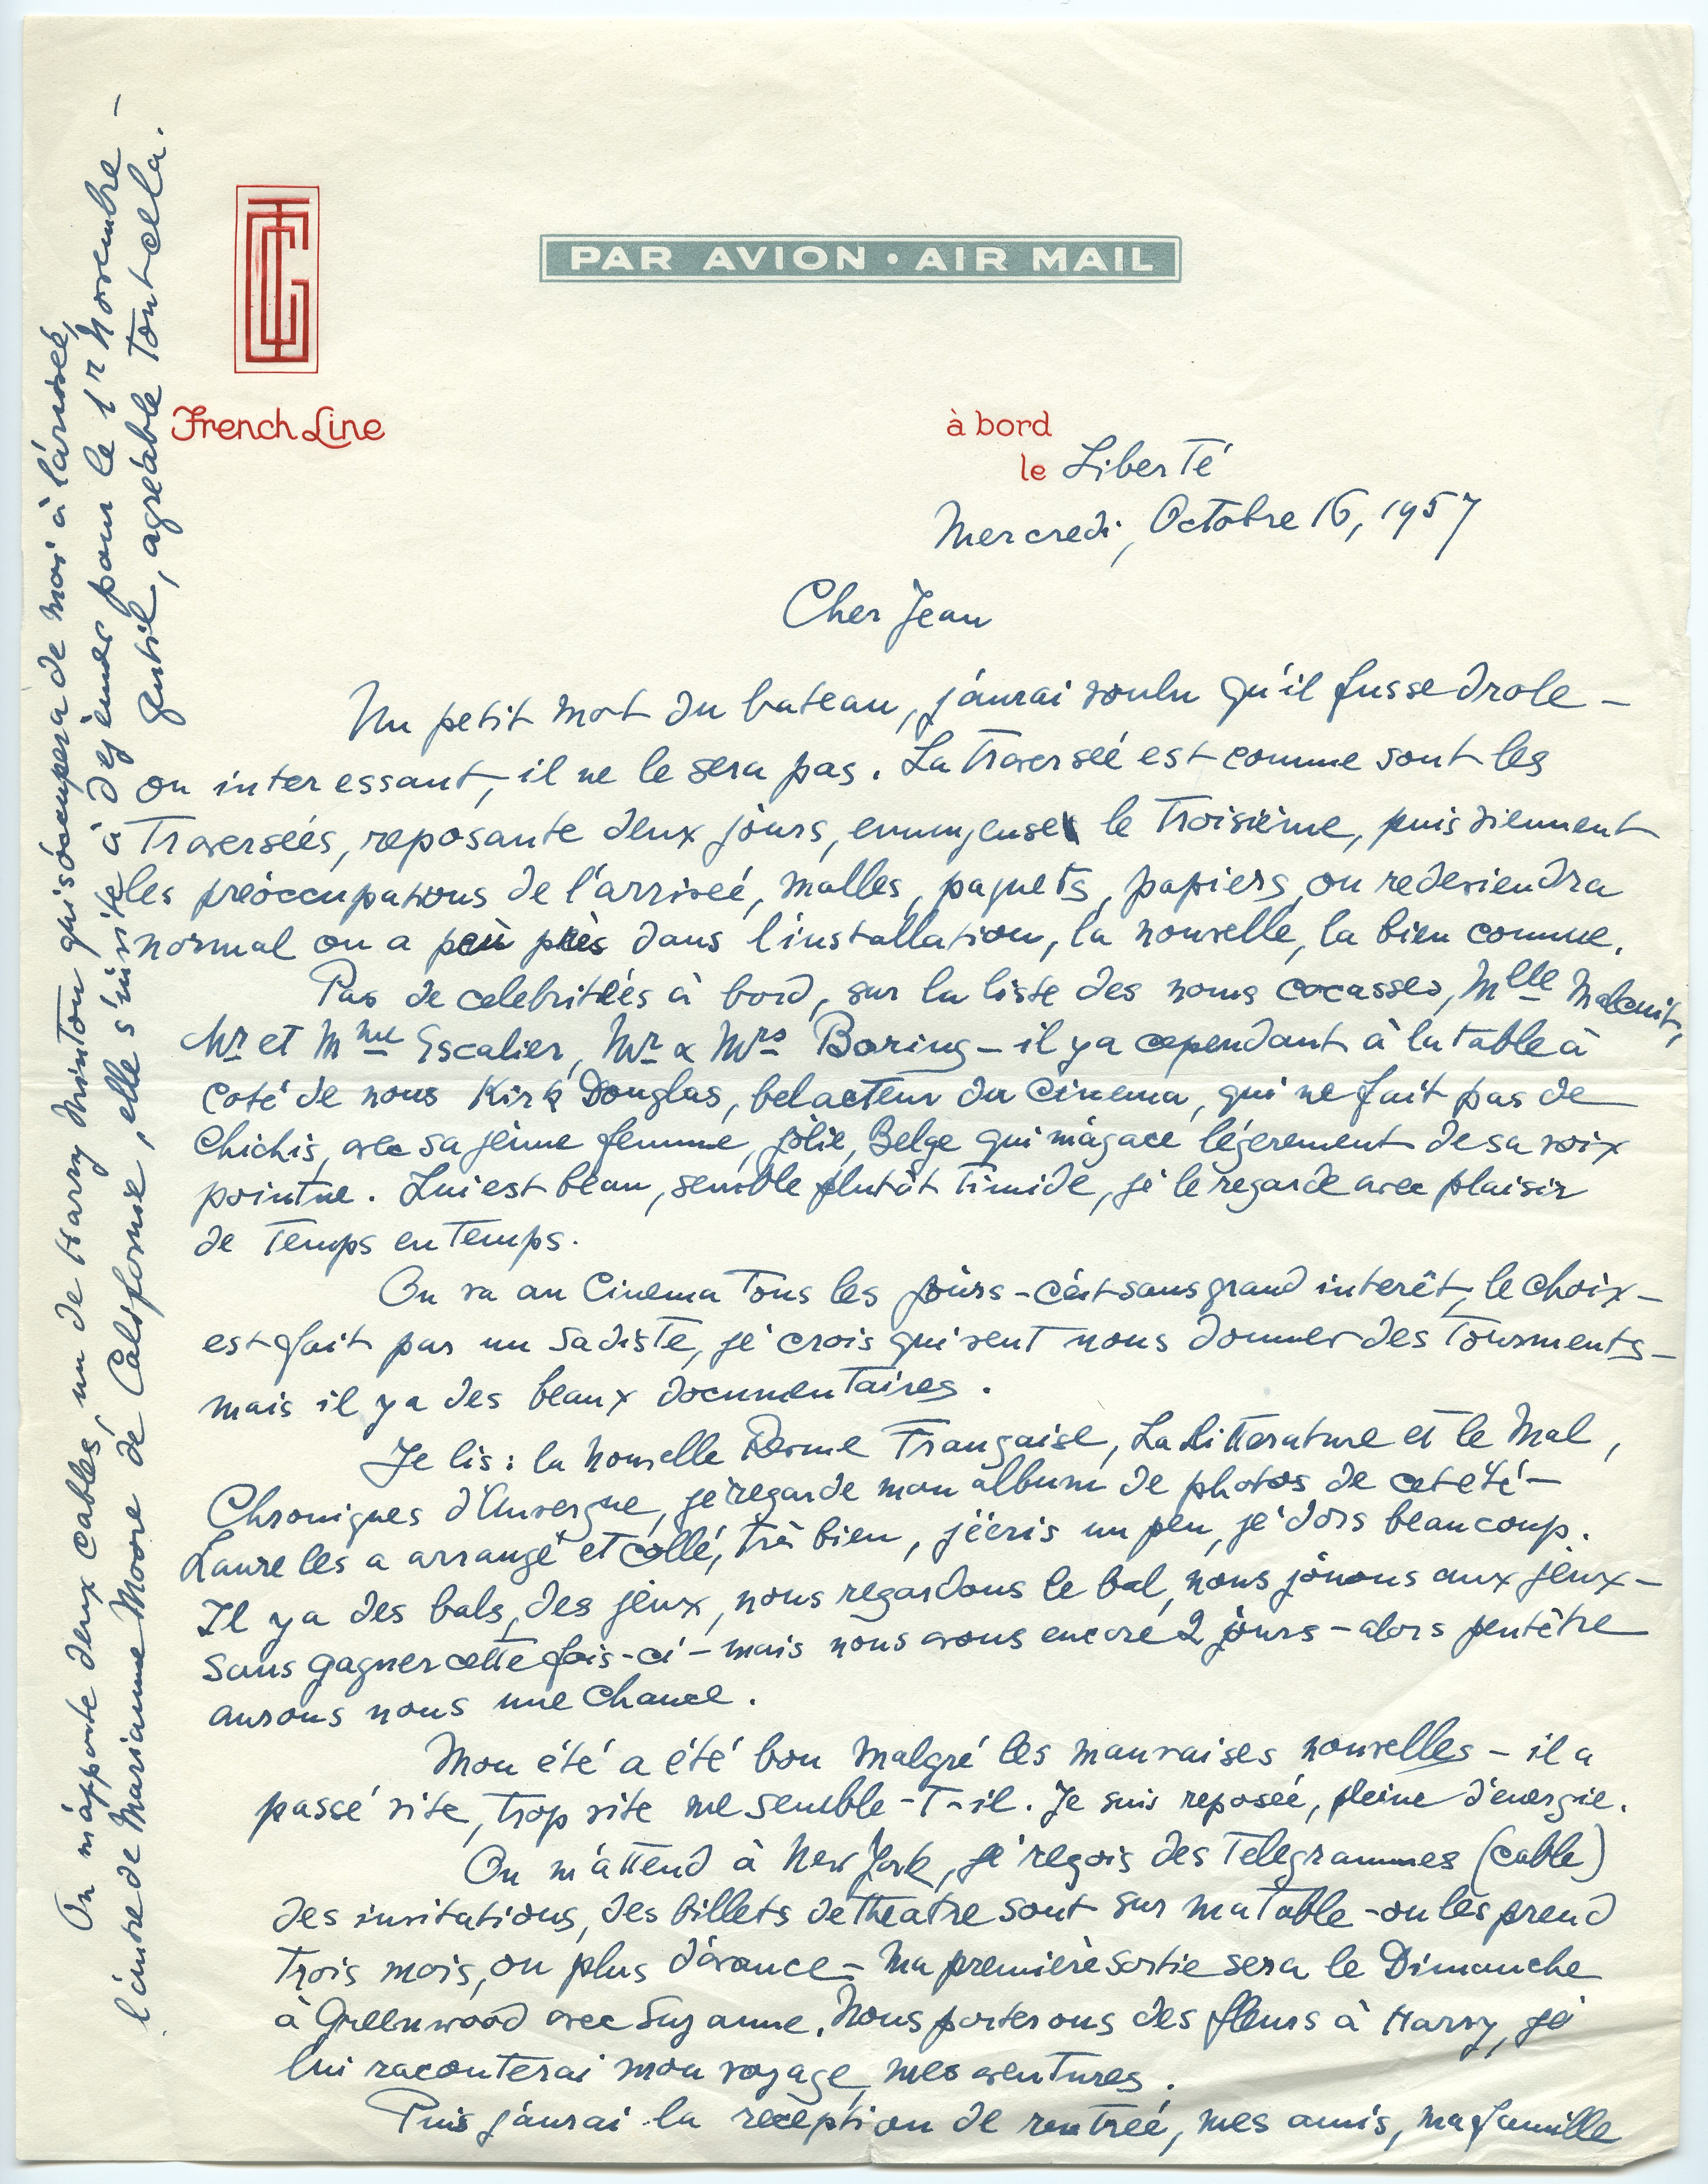 PAR AVION · AIR MAIL
French Line
à bord
le Liberté
Mercredi, Octobre 16, 1957
Cher Jean
Un petit mot du bateau, j'aurai voulu qu'il fusse drole –
ou interessant, il ne le sera pas. La Traversée est comme sont les
Traversées, reposante deux jours, ennuyeuse le Troisième, puis viennent
les préoccupations de l'arrivée, malles, paquets, papiers, on redeviendra
normal ou a peu près dans l'installation, la nouvelle, la bien connue.
Pas de celebritées à bord, sur la liste des noms cocasses, Mlle Malcuit,
Mr et Mme Escalier, Mr & Mrs Boring – il y a cependant à la table à
coté de nous Kirk Douglas, bel acteur du Cinema, qui ne fait pas de
chichis, avec sa jeune femme, jolie, Belge qui m'agace légerement de sa voix
pointue. Lui est beau, semble plutôt Timide, je le regarde avec plaisir
de Temps en Temps.
On va au Cinema Tous les jours – c'est sans grand interêt, le choix –
est fait par un Sadiste, je crois qui veut nous donner des Tourments –
mais il y a des beaux documentaires.
Je lis : la nouvelle Revue Française, La Litterature et le Mal,
Chroniques d'Auvergne, je regarde mon album de photos de cet été –
Laure les a arrangé et collé, très bien, j'écris un peu, je dors beaucoup.
Il y a des bals, des jeux, nous regardons le bal, nous jouons aux jeux –
sans gagner cette fois-ci – mais nous avons encore 2 jours – alors peutêtre
aurons nous une chance.
Mon été a été bon malgré les mauvaises nouvelles – il a
passé vite, trop vite me semble-T-il. Je suis reposée, pleine d'énergie.
On m'attend à New York, je reçois des Telegrammes (cable)
des invitations, des billets de theatre sont sur ma Table – on les prend
Trois mois, ou plus d'avance – ma première sortie sera le Dimanche
à Greenwood avec Suzanne. Nous porterons des fleurs à Harry, je
lui raconterai mon voyage, mes aventures.
Puis j'aurai la reception de rentrée, mes amis, ma famille
On m'apporte deux cables, un de Harry Minton qui s'occupera de moi à l'arrivée,
l'autre de Marianne Moore de Californie, elle s'invite à dejeuner pour le 1r Novembre –
gentil, agréable Tout cela.